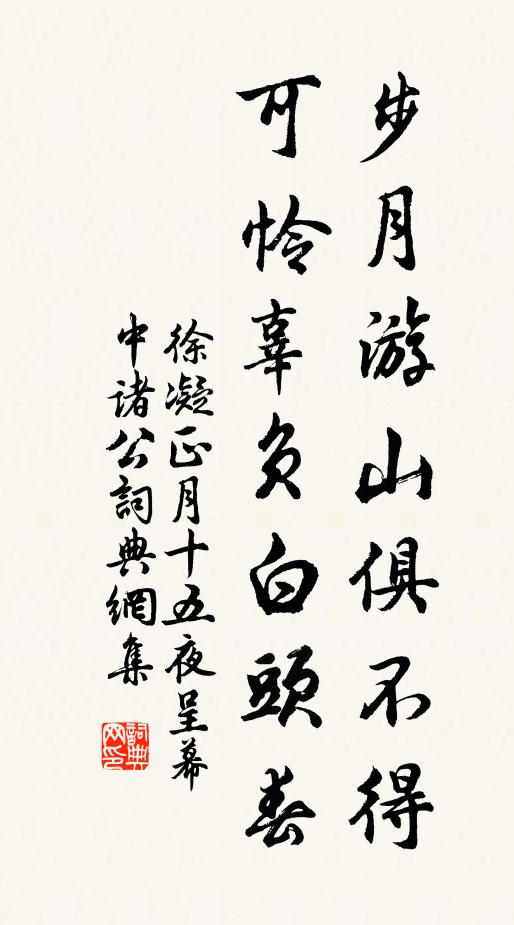 步月游山俱不得
可怜辜负白頭春
徐凝正月十五夜呈幕
中诸公詞典網集
詞典网印